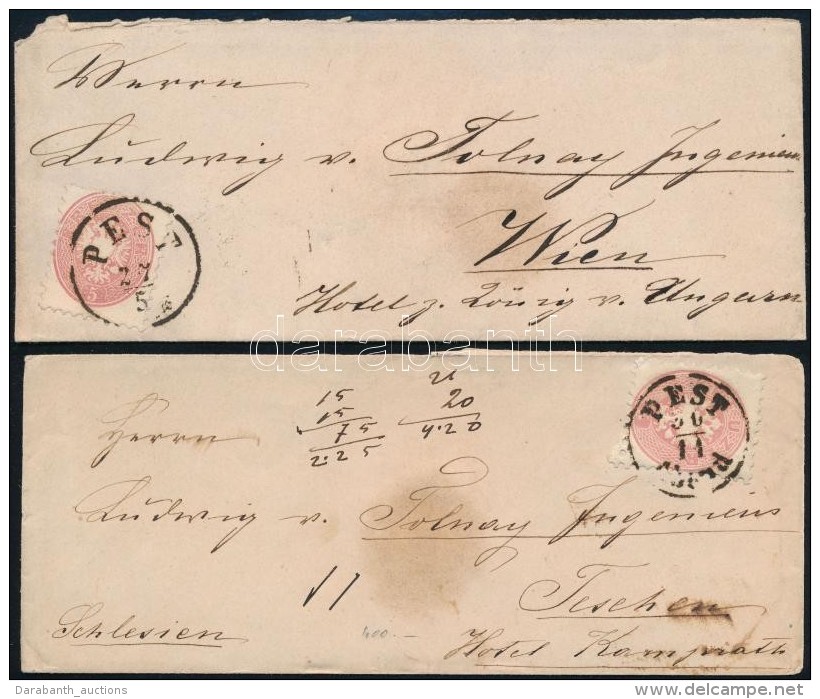 Herrn
Ludwig v. Tolnay Ingenieur
PEST
5
Wien
Hotel z. König v. Ungarn
darabanth
PEST
11
15
15
75
2.25
20
4.20
Herrn
Ludwig v. Tolnay Ingenieur
Teschen
Schlesien
400.-
Hotel Kamprath
Darabanth_auctions
delcampe.net